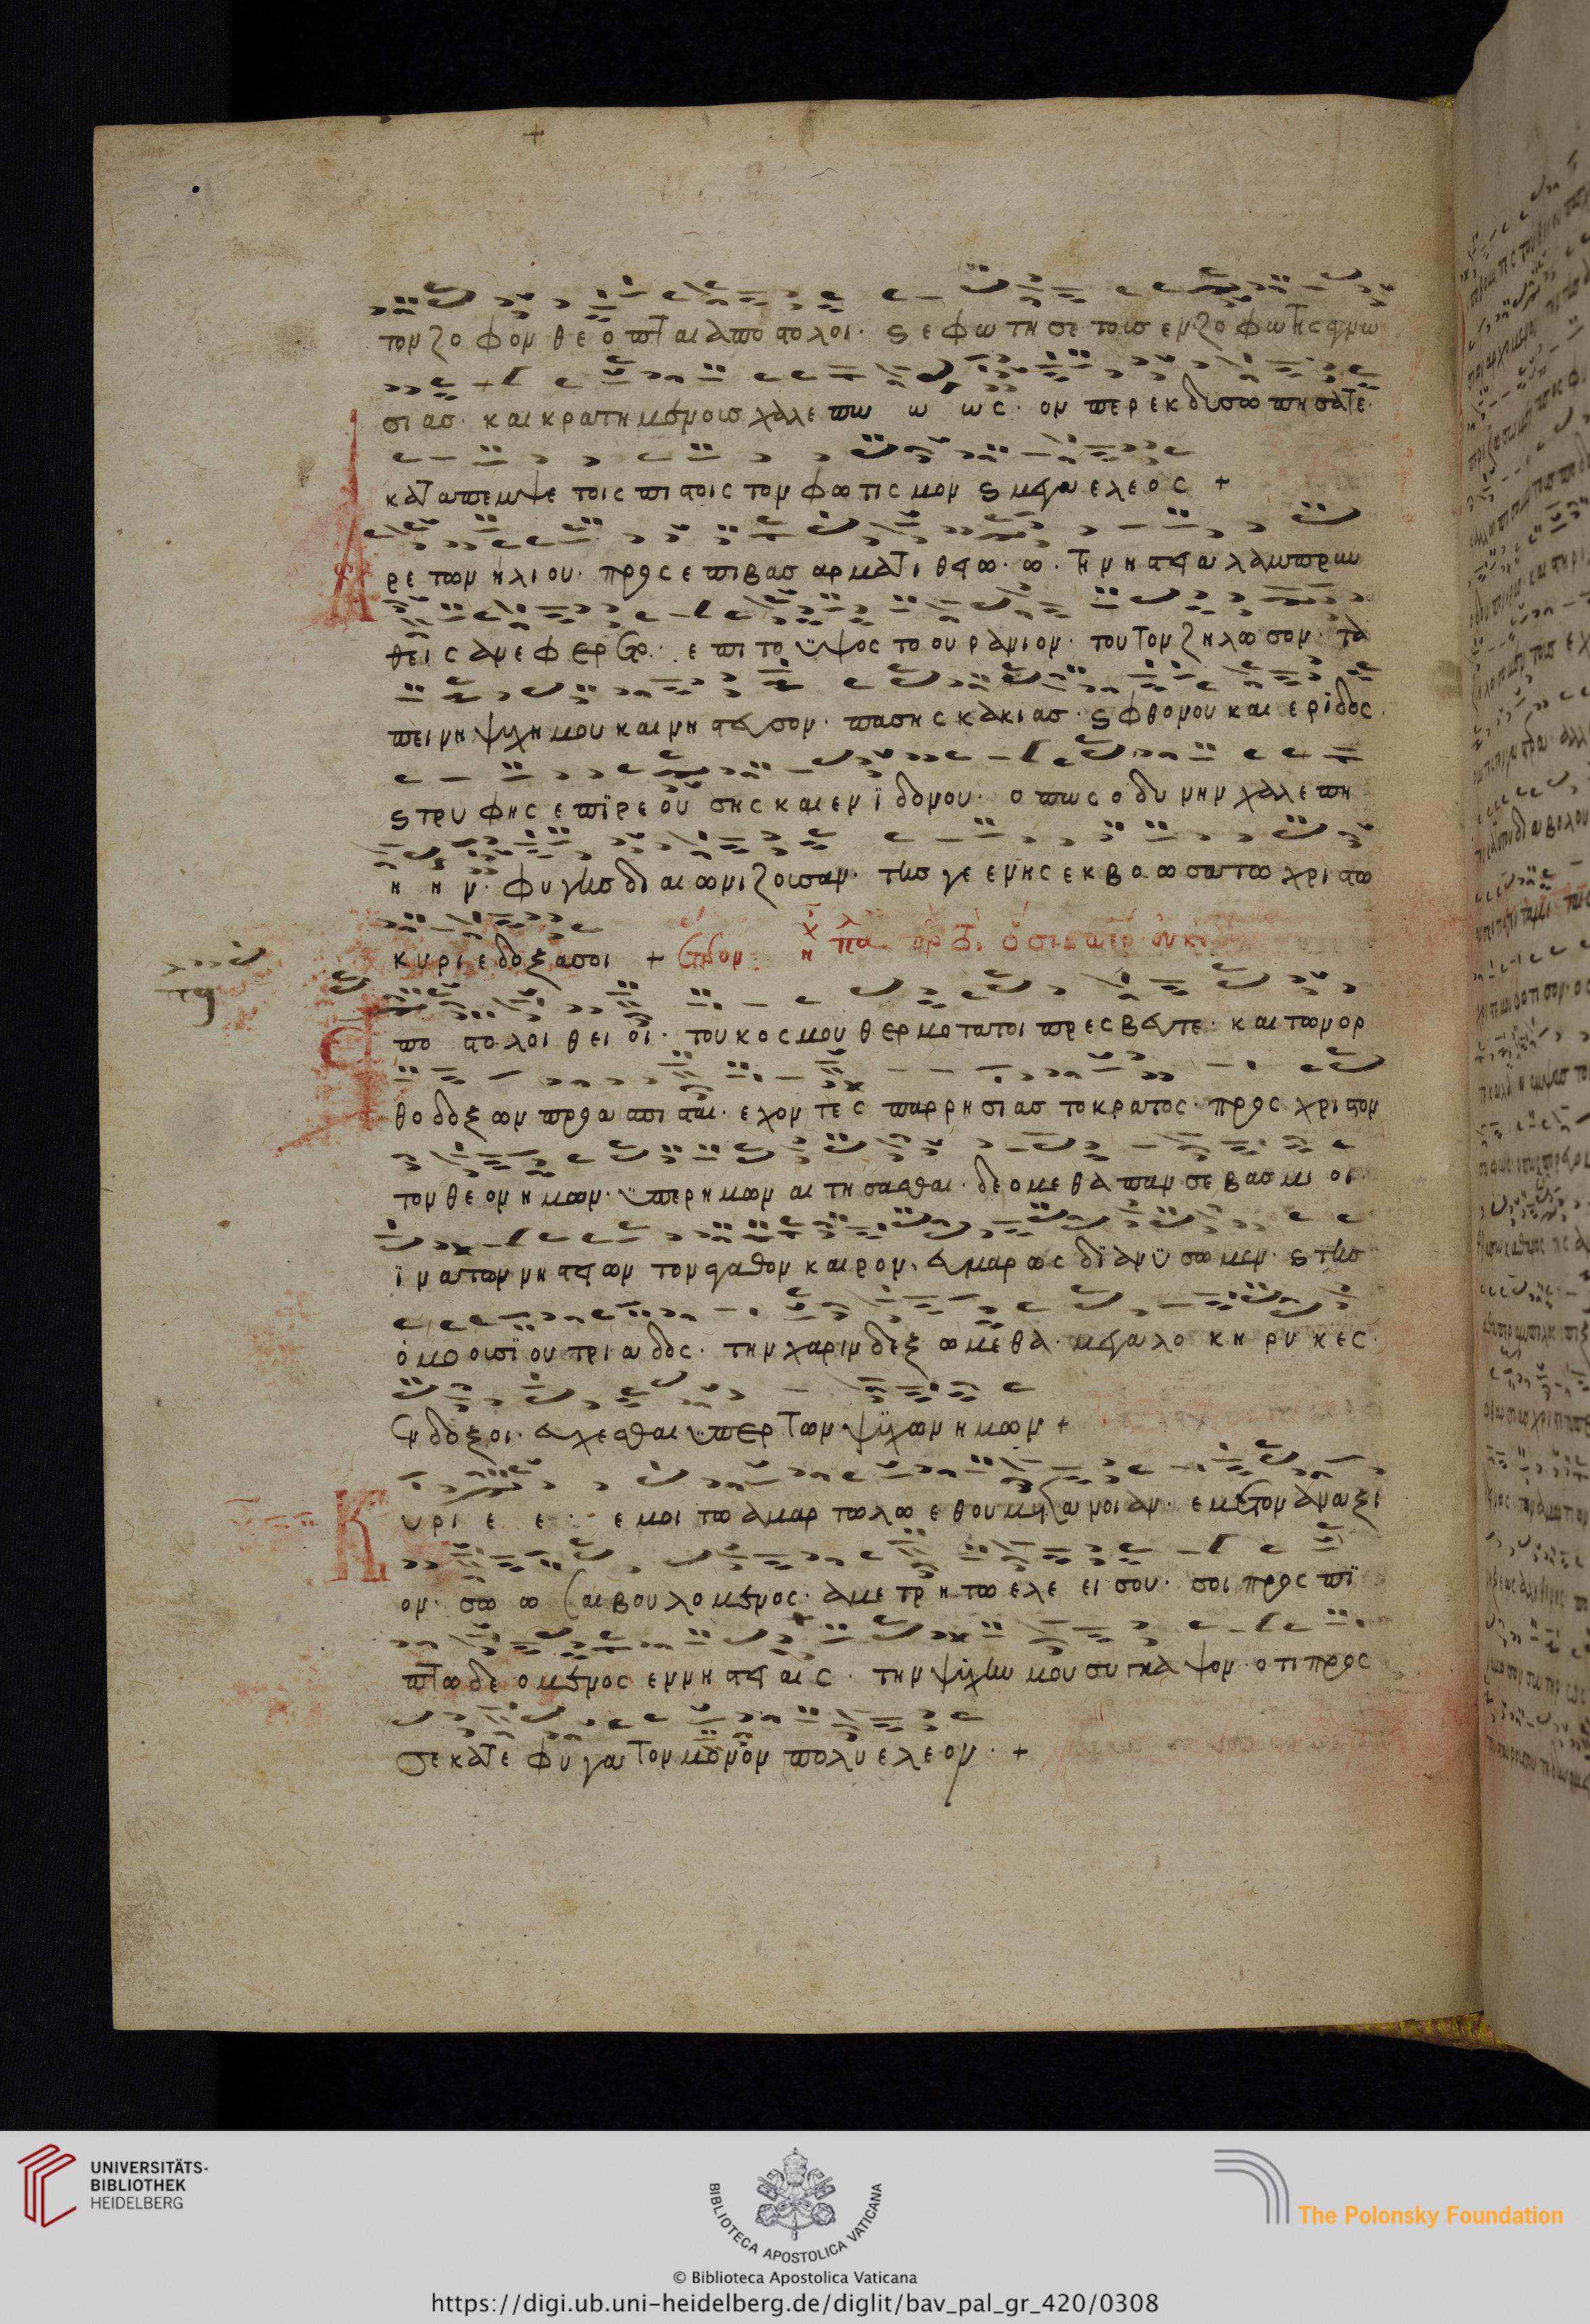 τον ζο φον θε ο πται απο στολοι· ϛ ε φω τη σε τοισ εν ζο φω της αγνω
σι ασ· και κρατη μενοισ χαλε πω ω ως· ον περ εκ δυσω πη σατε·
κατα πεμψε τοις πι στοις τον φω τις μον ϛ μεγα ελεος +
ρε των ηλιου· προς ε πι βασ αρματι θει ω· ω· τη νηστεια λαμπρυν
θεις ανε φερετο· ε πι το ϋψος το ου ρανιον· τουτον ζηλω σον· τα
πει νη ψυχη μου και νη στευ σον· πασης κακιασ· ϛ φθονου και ερϊδος·
ϛ τρυ φης ε πϊρε ου σης και εν ϊ δονου· ο πως ο δυ νην χαλε πη
η η ν· φυγησ δι αι ωνιζουσαν· τησ γε εννης εκ βο ω σα τω χριστω
κυριε δοξα σοι +
πο στο λοι θει οι· του κοσμου θερμοτατοι πρεσβευτε· και των ορ
θο δοξ ων προασπι σται· εχον τες παρρησιασ το κρατος· προς χριστον
τον θεον ημων· ϋπερ ημων αι τη σασθαι· δεομεθα παν σε βασμι οι·
ϊ να των νηστειων τον αγαθον καιρον· ευμαρως δϊ ανϋ σωμεν· ϛ τησ
ομοουσϊ ου τρι α δος· την χαριν δεξ ωμεθα· μεγαλο κη ρυ κες·
ενδοξοι· ευχεσθαι ϋπερ των ψυχων ημων +
Κ υρι ε ε· εμοι τω αμαρ τωλω ε θου μετα νοιαν· εμε τον αναξι
ον· σω ω σαι βουλομενος· αμετρη τω ελε ει σου· σοι προς πϊ
πτω δε ομενος εν νηστειαις· την ψυχην μου συγκα ψον· οτι προς
σε κατε φυ γα τον μονον πολυ ελεον· +
UNIVERSITÄTS-
BIBLIOTHEK
HEIDELBERG
BIBLIOTECA APOSTOLICA VATICANA
The Polonsky Foundation
© Biblioteca Apostolica Vaticana
https://digi.ub.uni-heidelberg.de/diglit/bav_pal_gr_420/0308